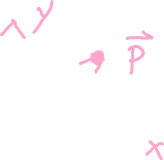 y
P
x